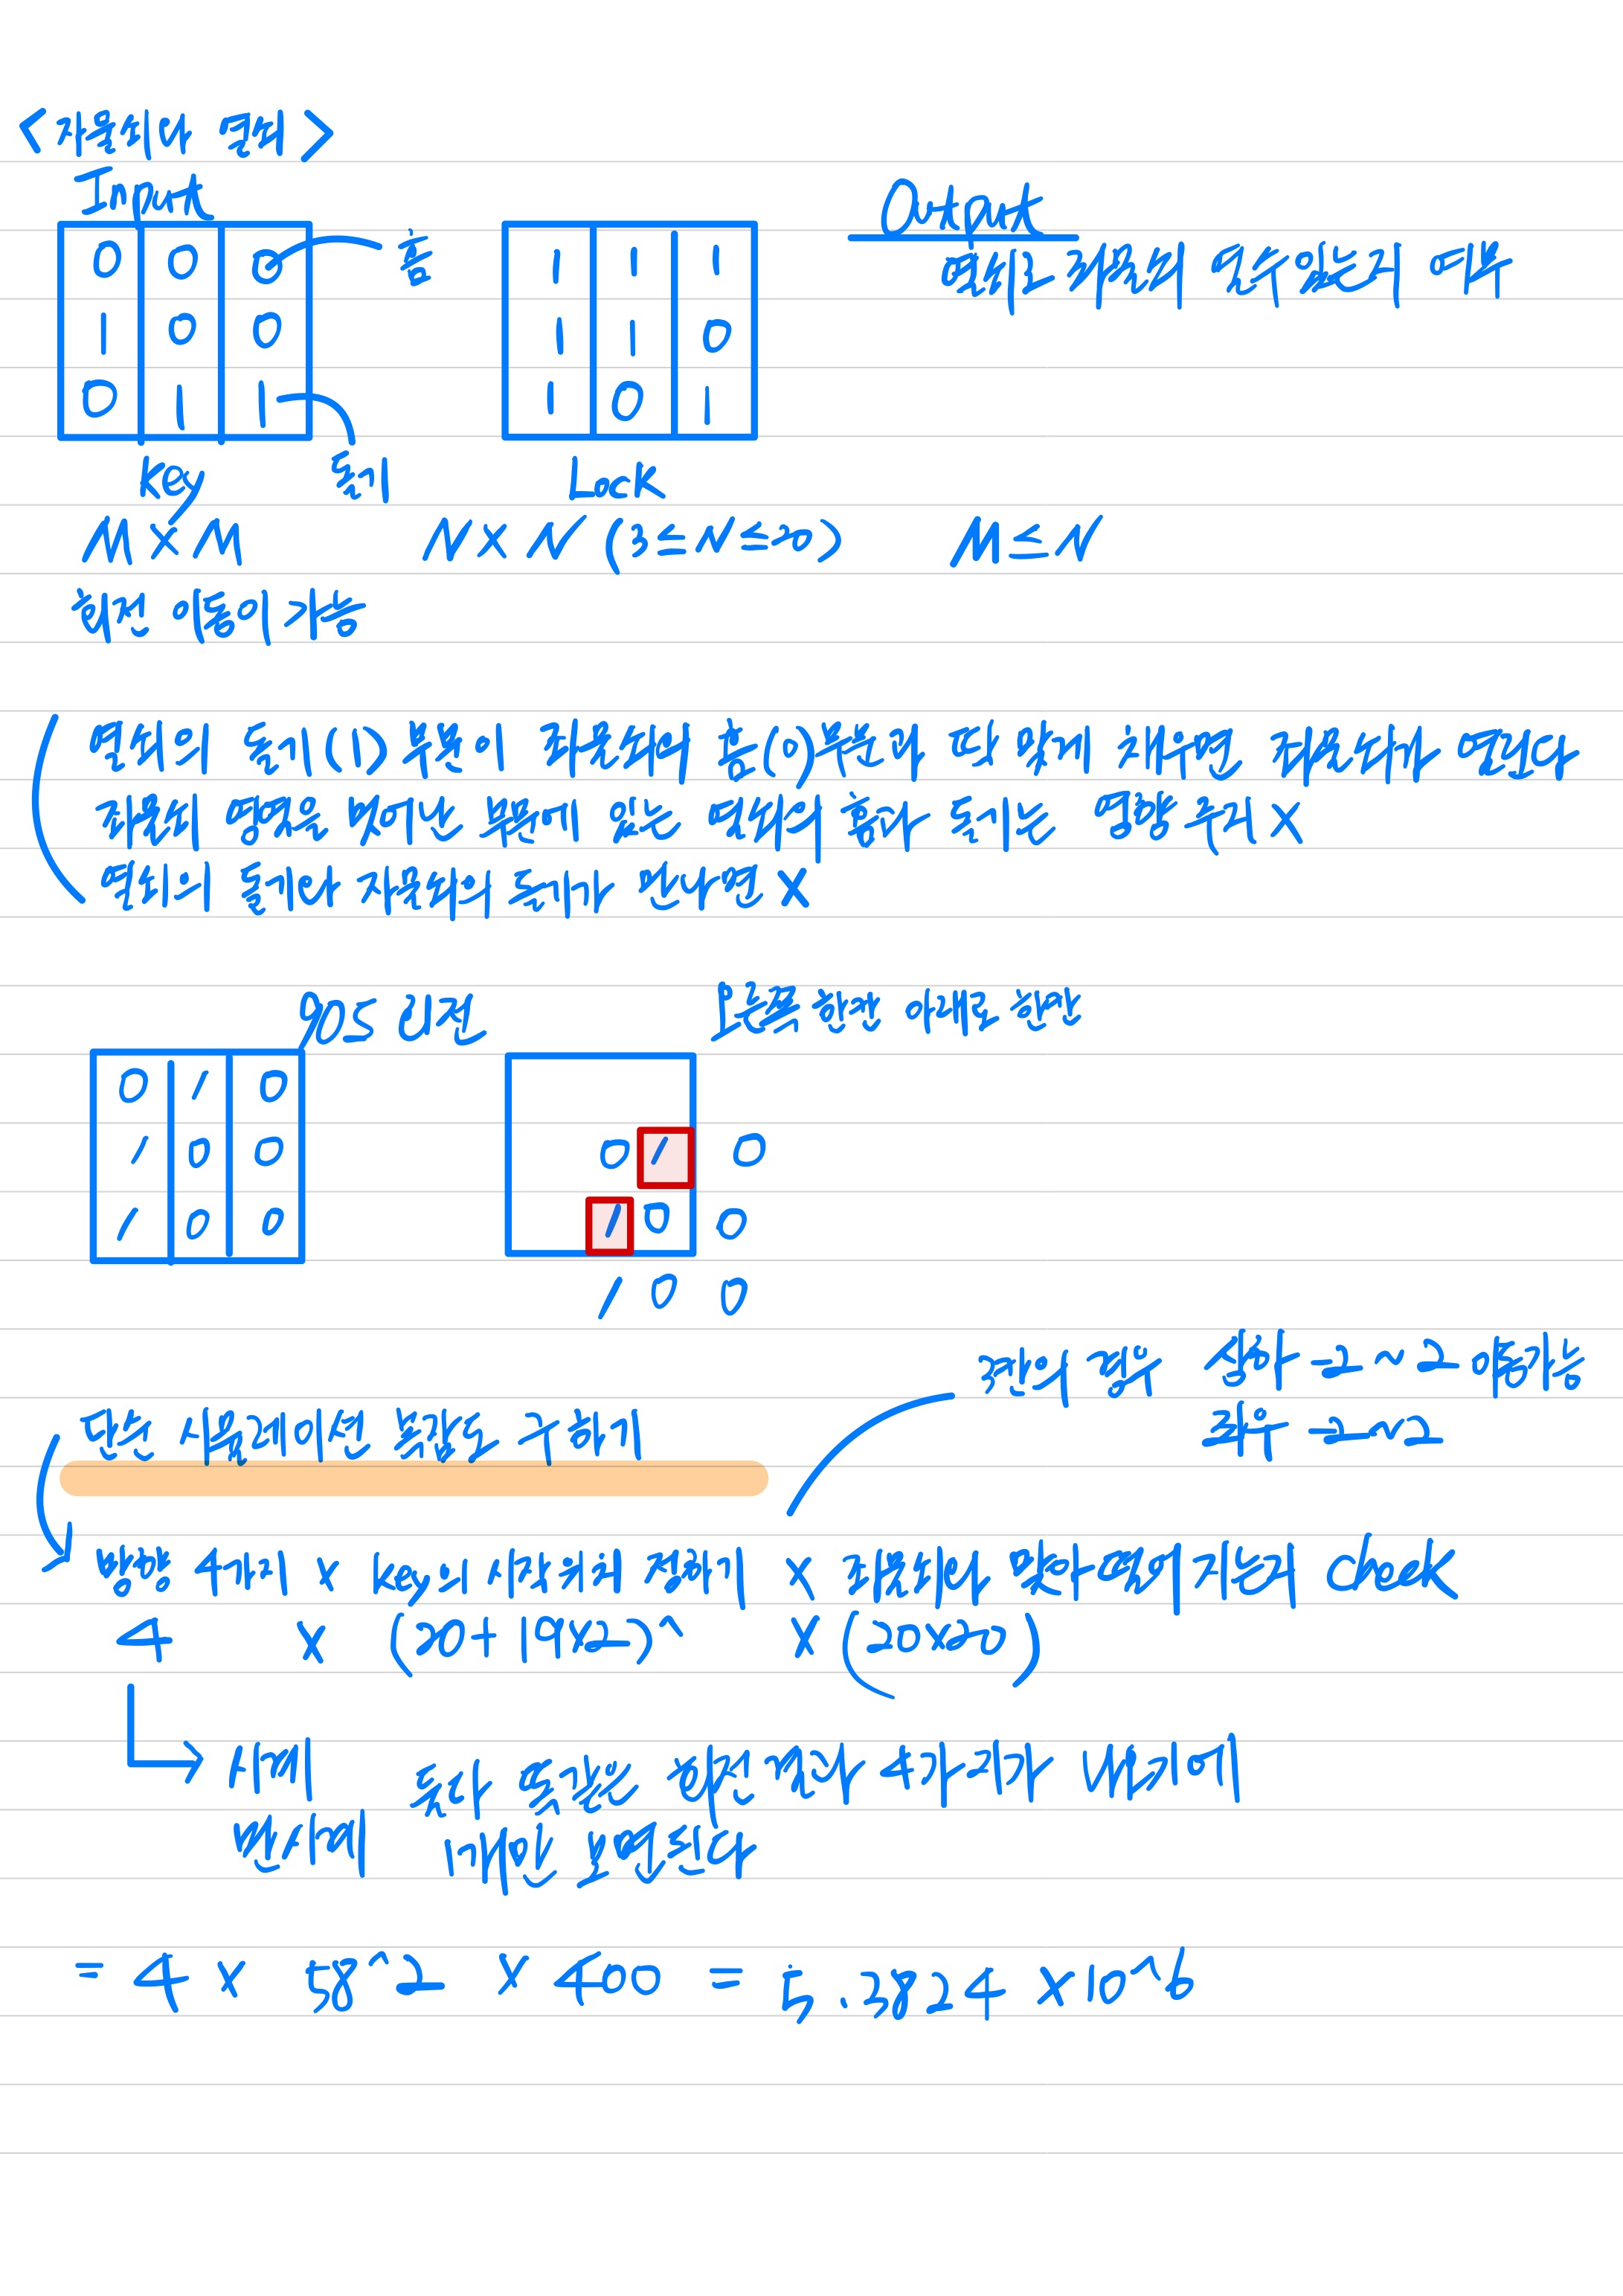 <자물쇠와 열쇠>
Input
0 0 0 홈
1 0 0
0 1 1 돌기
Key
M X M
회전 이동이 가능
1 1 1
1 1 0
1 0 1
Lock
N X N (3≤N≤20) M≤N
Output
열쇠로 자물쇠 열수있는지 여부
열쇠의 돌기(1) 부분이 자물쇠의 홈(0)부분에 딱 맞게 채우면 자물쇠가 열린다
자물쇠 영역을 벗어난 부분에 있는 열쇠의 홈과 돌기는 영향 주지 X
열쇠의 돌기와 자물쇠의 돌기가 만나면 X
90도 회전
0 1 0
1 0 0
1 0 0
오른쪽 한칸 아래로 한칸
0 1 0
1 0 0
1 0 0
키의 경우 상하 -2~2 이동가능
좌우 -2~2
단순 시뮬레이션 복잡도 구하기
방향 4가지 X Key의 시작위치 정하기 X 자물쇠와 맞아 열어지는지 check
4 X (20+19X2)^2 X (20X20)
시계
반시계
= 4 X 58^2 X 400 = 5.3824 X10^6